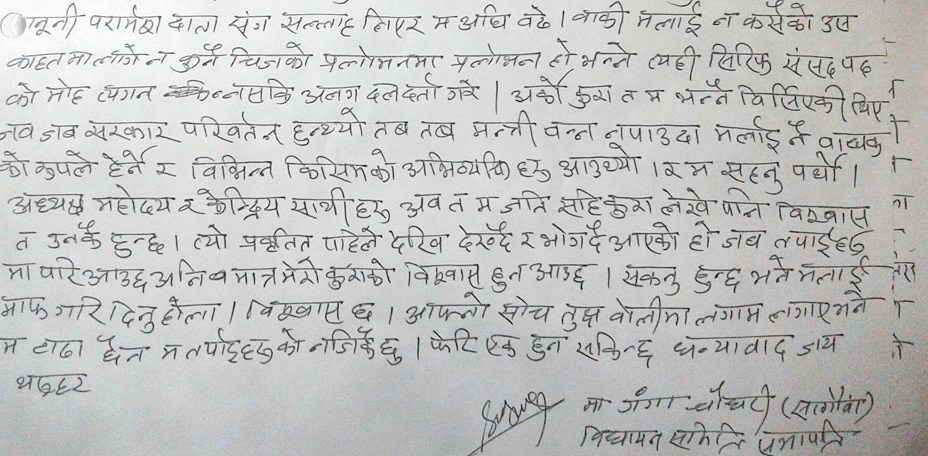 नूनी परामर्श दाता संग सल्लाह लिएर म अघि वढे । वाकी मलाई न कसैको उस
काहत मा लागे न कुनै चिजको प्रलोभनमा प्रलोभन हो भन्ने त्यही सिरिफ संसद पद
को मोह त्यगन नसकि अलग दल दर्ता गरे । अर्को कुरा त म भन्नै विर्सिएकी थिए
जव जव सरकार परिवर्तन हुन्थ्यो तब तब मन्त्री वन्न नपाउदा मलाई नै वाधक
को रुपले हेर्ने र विभिन्न किसिमको अभिव्यक्ति हरु आउथ्यो । र म सहनु पर्थो ।
अध्यक्ष महोदय र केन्द्रिय साथी हरु अव त म जति सहि कुरा लेखे पनि विश्वास
त उनकै हुन्छ । त्यो प्रवृतित पहिले देखि देख्दै र भोग्दै आएको हो जब तपाईहरु
मा परि आउछ अनि व मात्र मेरो कुराको विश्वास हुन आउछ । सक्नु हुन्छ भने मलाई
माफ गरि दिनु होला । विश्वास छ । आफ्नो सोच तुछ वोलीमा लगाम लगाए भने
म टाढा छैन म तपाईहरु को नजिकै छु । फेरि एक हुन सकिन्छ धन्यावाद जय
थरुहट
मा गंगा चौधरी (सत्गौवा)
विधायन समिति सभापति